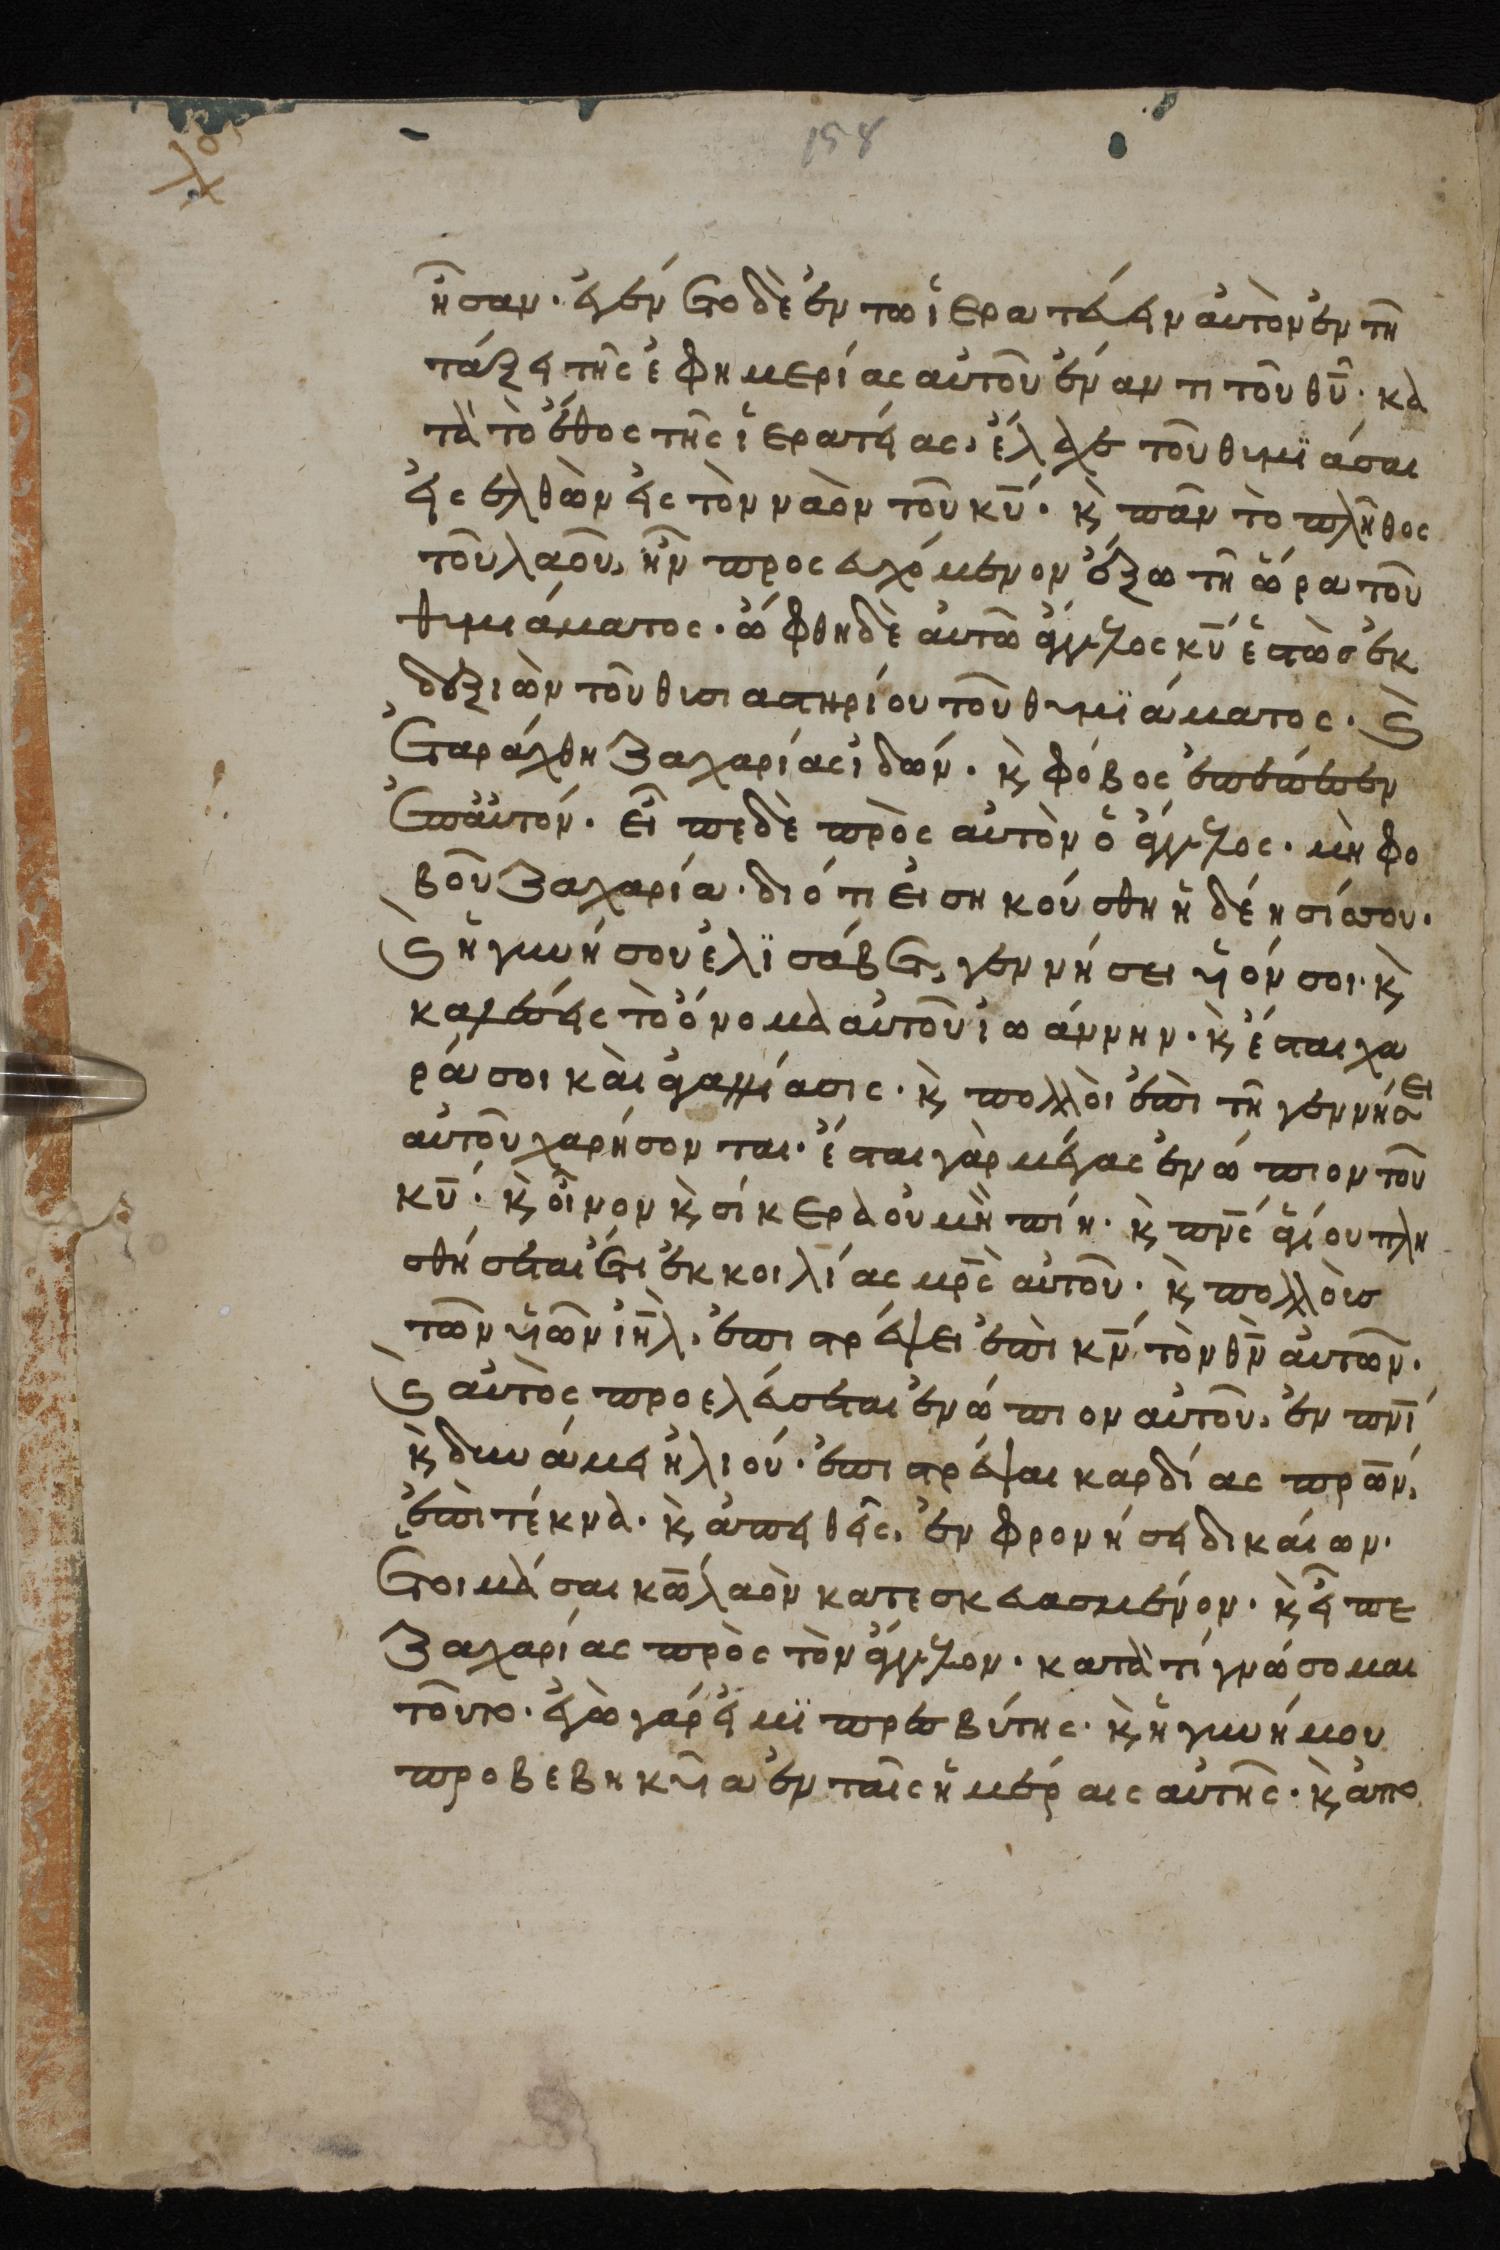 158
ἦσαν· ἐγένετο δὲ ἐν τω ἱερατεύειν ἀυτὸν ἐν τῆ
τάξει τῆς ἐφημερίας αὐτοῦ ἐνάντι τοῦ θῦ· κα
τὰ τὸ ἔθος τῆς ἱερατείας, ἔλαχε τοῦ θυμϊάσαι
εἰσελθὼν εἰς τὸν ναὸν τοῦ κῡ· κ̀ πᾶν τὸ πλῆθος
τοῦ λαοῦ, ἦν προσευχόμενον ἔξω τῆ ὥρα τοῦ
θυμιάματος· ὤφθη δὲ ἀυτῶ ἄγγελος κῡ ἑστὼσ ἐκ
δεξιὼν τοῦ θισιαστηρίου τοῦ θυμϊάματος· κ̀
ἐταράχθη Ζαχαρίας ἰδών· κ̀ φόβος ἐπέπεσεν
ἐπἀυτόν· εἶπε δὲ πρὸς αὐτὸν ὁ ἄγγελος· μὴ φο
βοῦ Ζαχαρία· διότι εἰσηκούσθη ἡ δέησίσσου·
κ̀ ἡ γυνή σου ἐλϊσάβετ, γεννήσει υἱόν σοι· κ̀
καλέσεις τὸ ὄνομα ἀυτοῦ ἰωάννην· κ̀ ἔσται χα
ρά σοι κὰι ἀγαλλίασις· κ̀ πολλὸι ἐπὶ τῆ γεννήσει
αυτοῦ χαρήσονται· ἔσται γὰρ μέγας ἐνώπιον τοῦ
κῡ· κ̀ οἶνον κ̀ σίκερα ὀυ μὴ πίη· κ̀ πνς̄ ἁγίου πλη
σθήσεται ἔτι ἐκ κοιλίας μρς̄ ἀυτοῦ· κ̀ πολλὸυσ
τῶν υἱῶν ἰηλ̄· ἐπιστρέψει ἐπὶ κν̄ τὸν θν̄ ἀυτῶν·
κ̀ αυτὸς προελεύσεται ἐνώπιον αὐτοῦ, ἐν πνῑ
κ̀ δυνάμει ἠλιού· ἐπιστρέψαι καρδίας πρω̄ν,
ἐπὶ τέκνα· κ̀ ἀπειθεῖς, ἐν φρονήσει δικαίων·
ἑτοιμάσαι κω̄ λαὸν κατεσκευασμένον· κ̀ εἶπε
Ζαχαρίας πρὸς τὸν ἄγγελον· κατὰ τί γνώσομαι
τοῦτο· ἐγὼ γάρ εἰμϊ πρεσβύτης· κ̀ ἡ γυνή μου
προβεβηκυῖα ἐν ταῖς ἡμέραις ἀυτῆς· κ̀ ἀπο